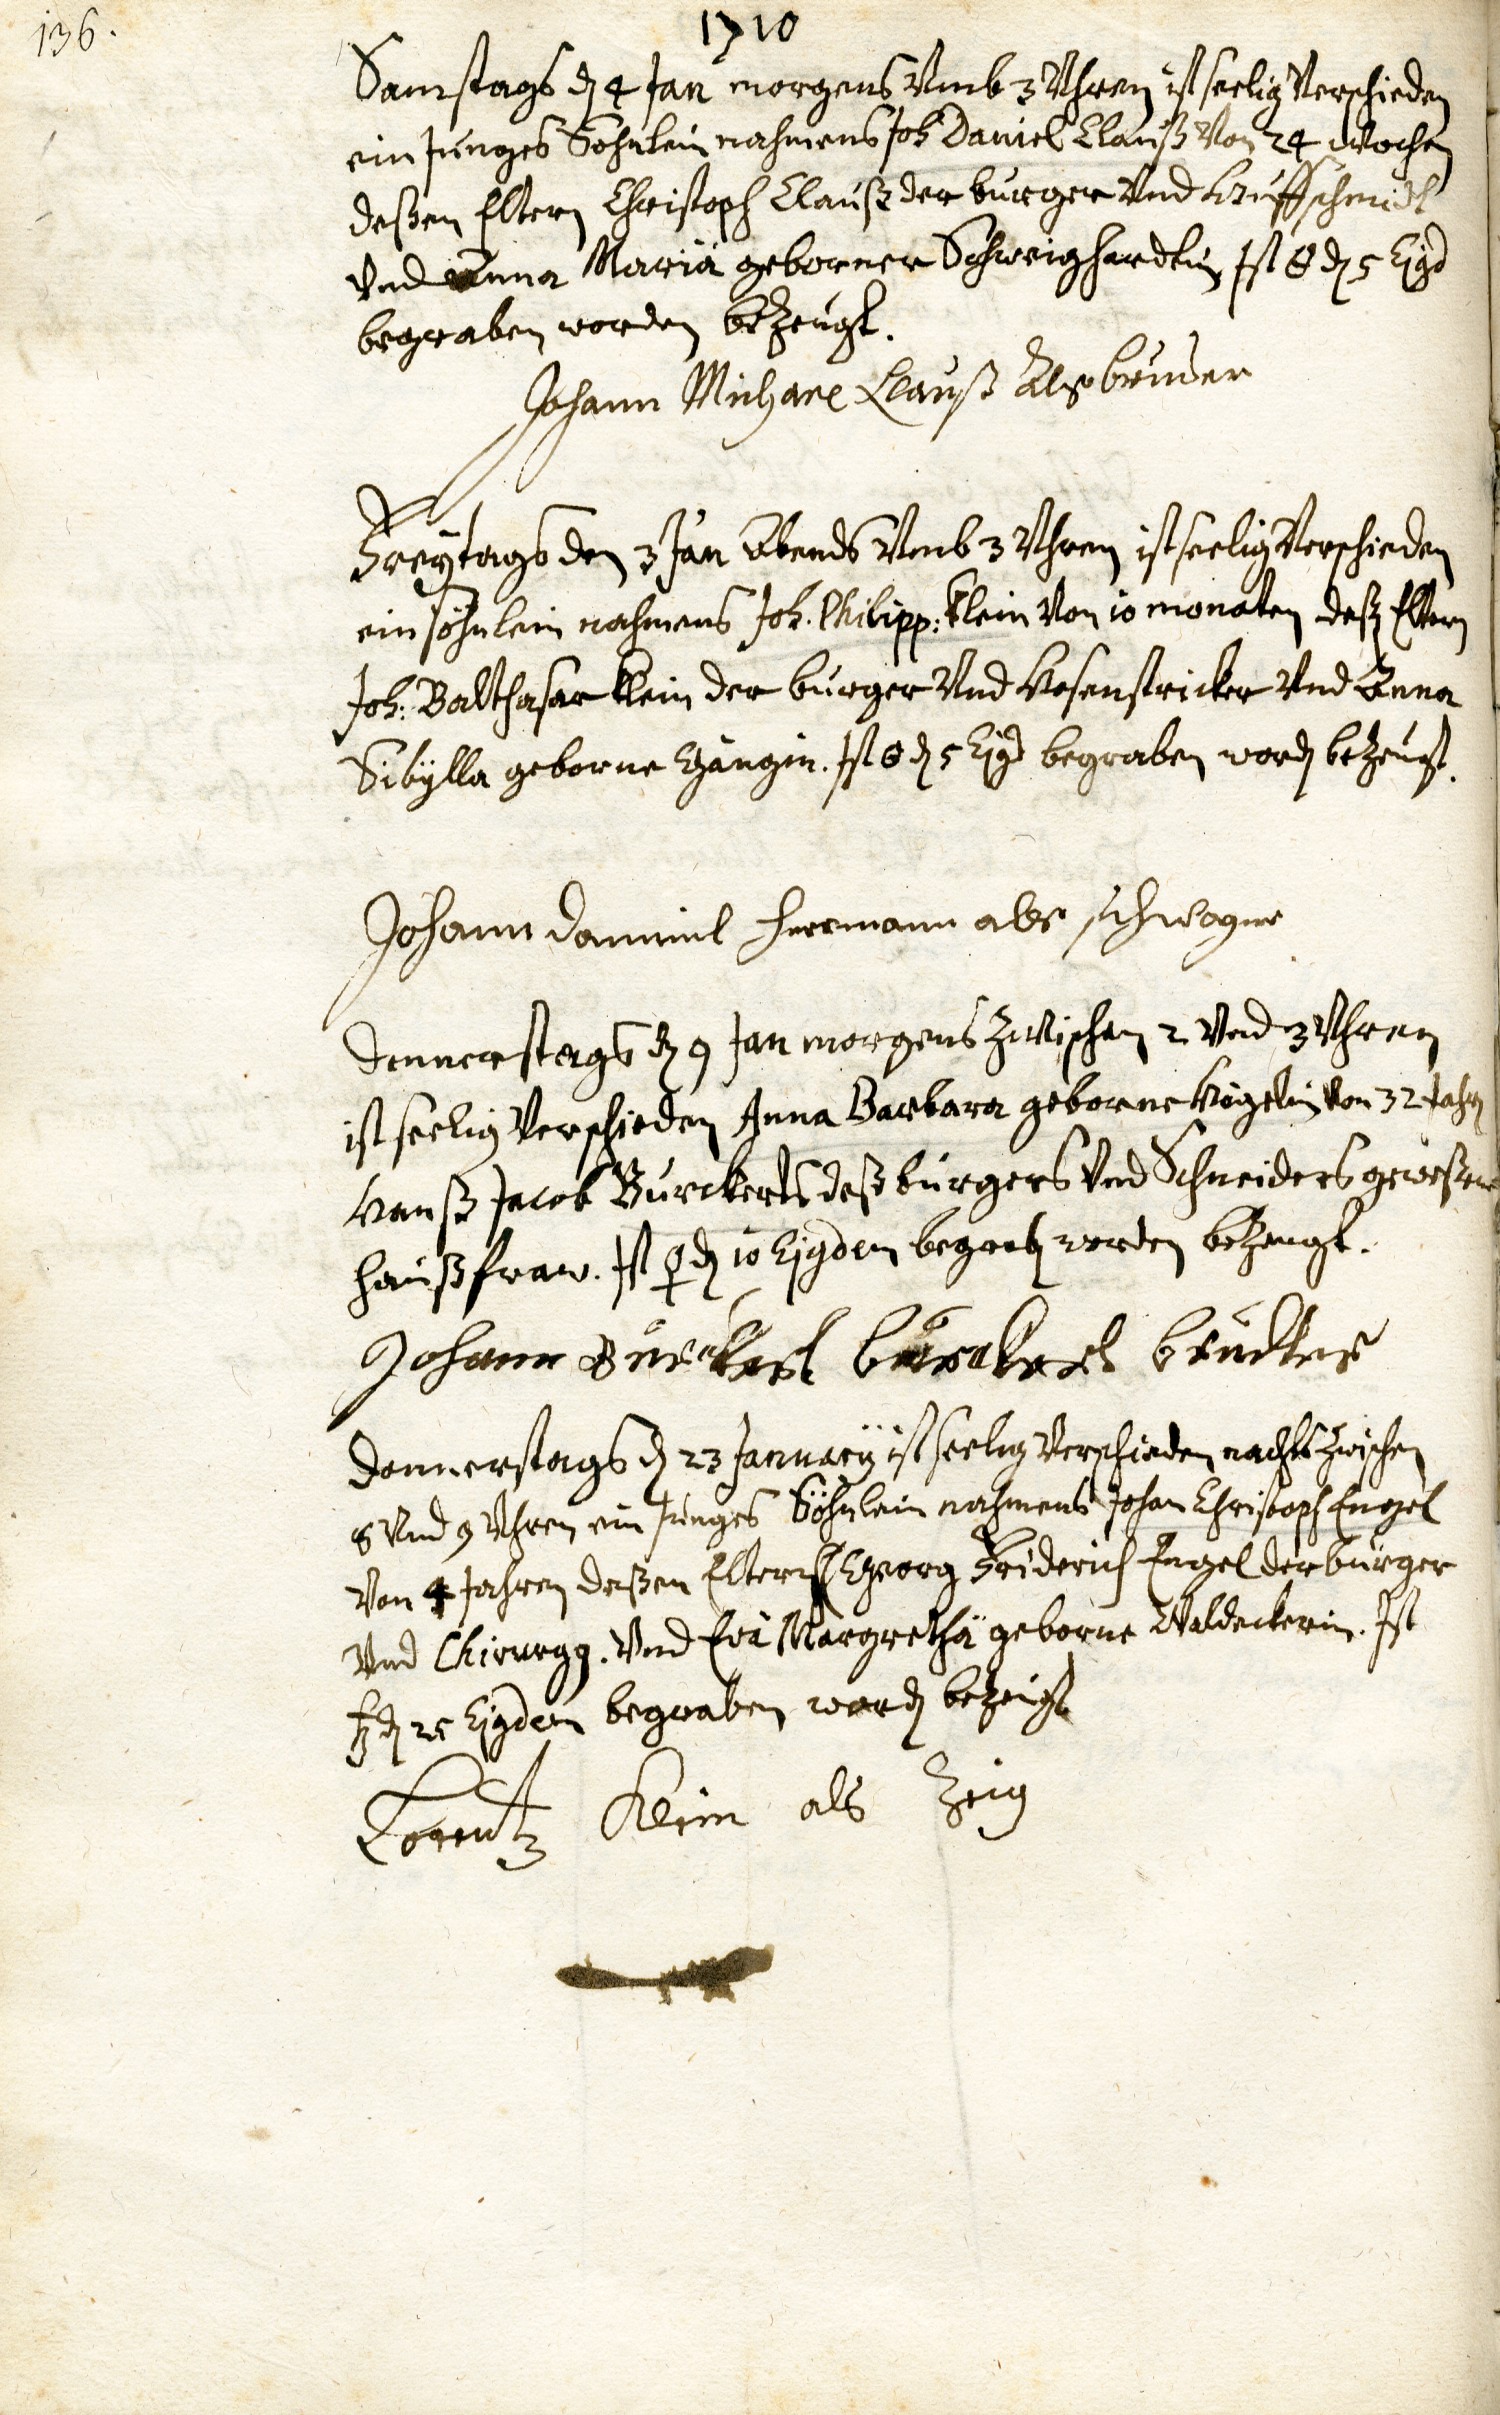 136.
1710
Samstags dh 4 Jan morgens Umb 3 Uhren ist seelig Verschieden
ein Junges Söhnlein nahmens Joh Daniel Clauß Von 24 wochen
deßen Eltern Christoph Clauß der burger Und Huffschmidt
Und Anna Maria geborner Schweighardtin Ist dh 5 Ejsd
begraben worden bezeugt.
Johann Michael Clauß Alß bruder
Freytags den 3 Jan Abends Umb 3 Uhren ist seelig Verschieden
ein söhnlein nahmens Joh. Philipp: Klein Von 10 monaten deß Eltern
Joh: Balthasar Klein der burger Und Hosenstricker Und Anna
Sibÿlla geborne Gangin. Ist dh 5 Ejsd begraben word bezeugt.
Johann Danniel Herrmann alß schwager
Donnerstags dh 9 Jan morgens Zwischen 2 Und 3 Uhren
ist seelig Verschieden Anna Barbara geborne Vögelin Von 32 Jahr
Hanß Jacob Burckerts deß burgers Und Schneiders geweßene
haußfraw. Ist ♀ dh 10 Ejsdem begrab worden bezeugt.
Johann Burckert
Donnerstags dh 23 January ist seelig Verschieden nachts zwischen
8 Und 9 Uhren ein Junges Söhnlein nahmens Johan Christoph Engel
Von 4 Jahren deßen Eltern Georg Friderich Engel der burger
Und Chirurgg. Und Eva Margretha geborne Waldeckerin. Ist
♄ dh 25 Ejsdem begraben word bezeugt
Lorentz Klein als Zeig